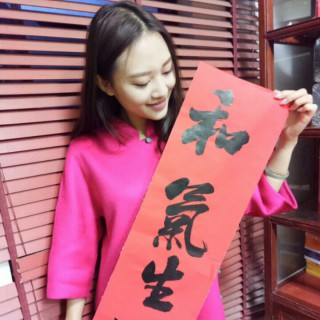 和氣生